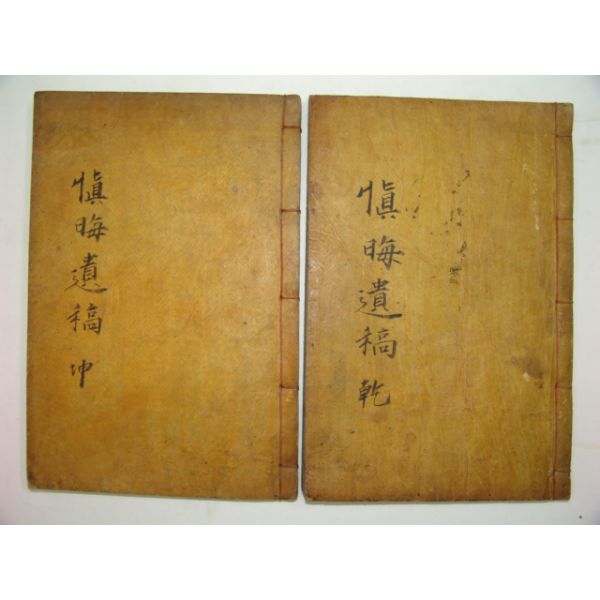 愼晦遺稿 乾
愼晦遺稿 坤